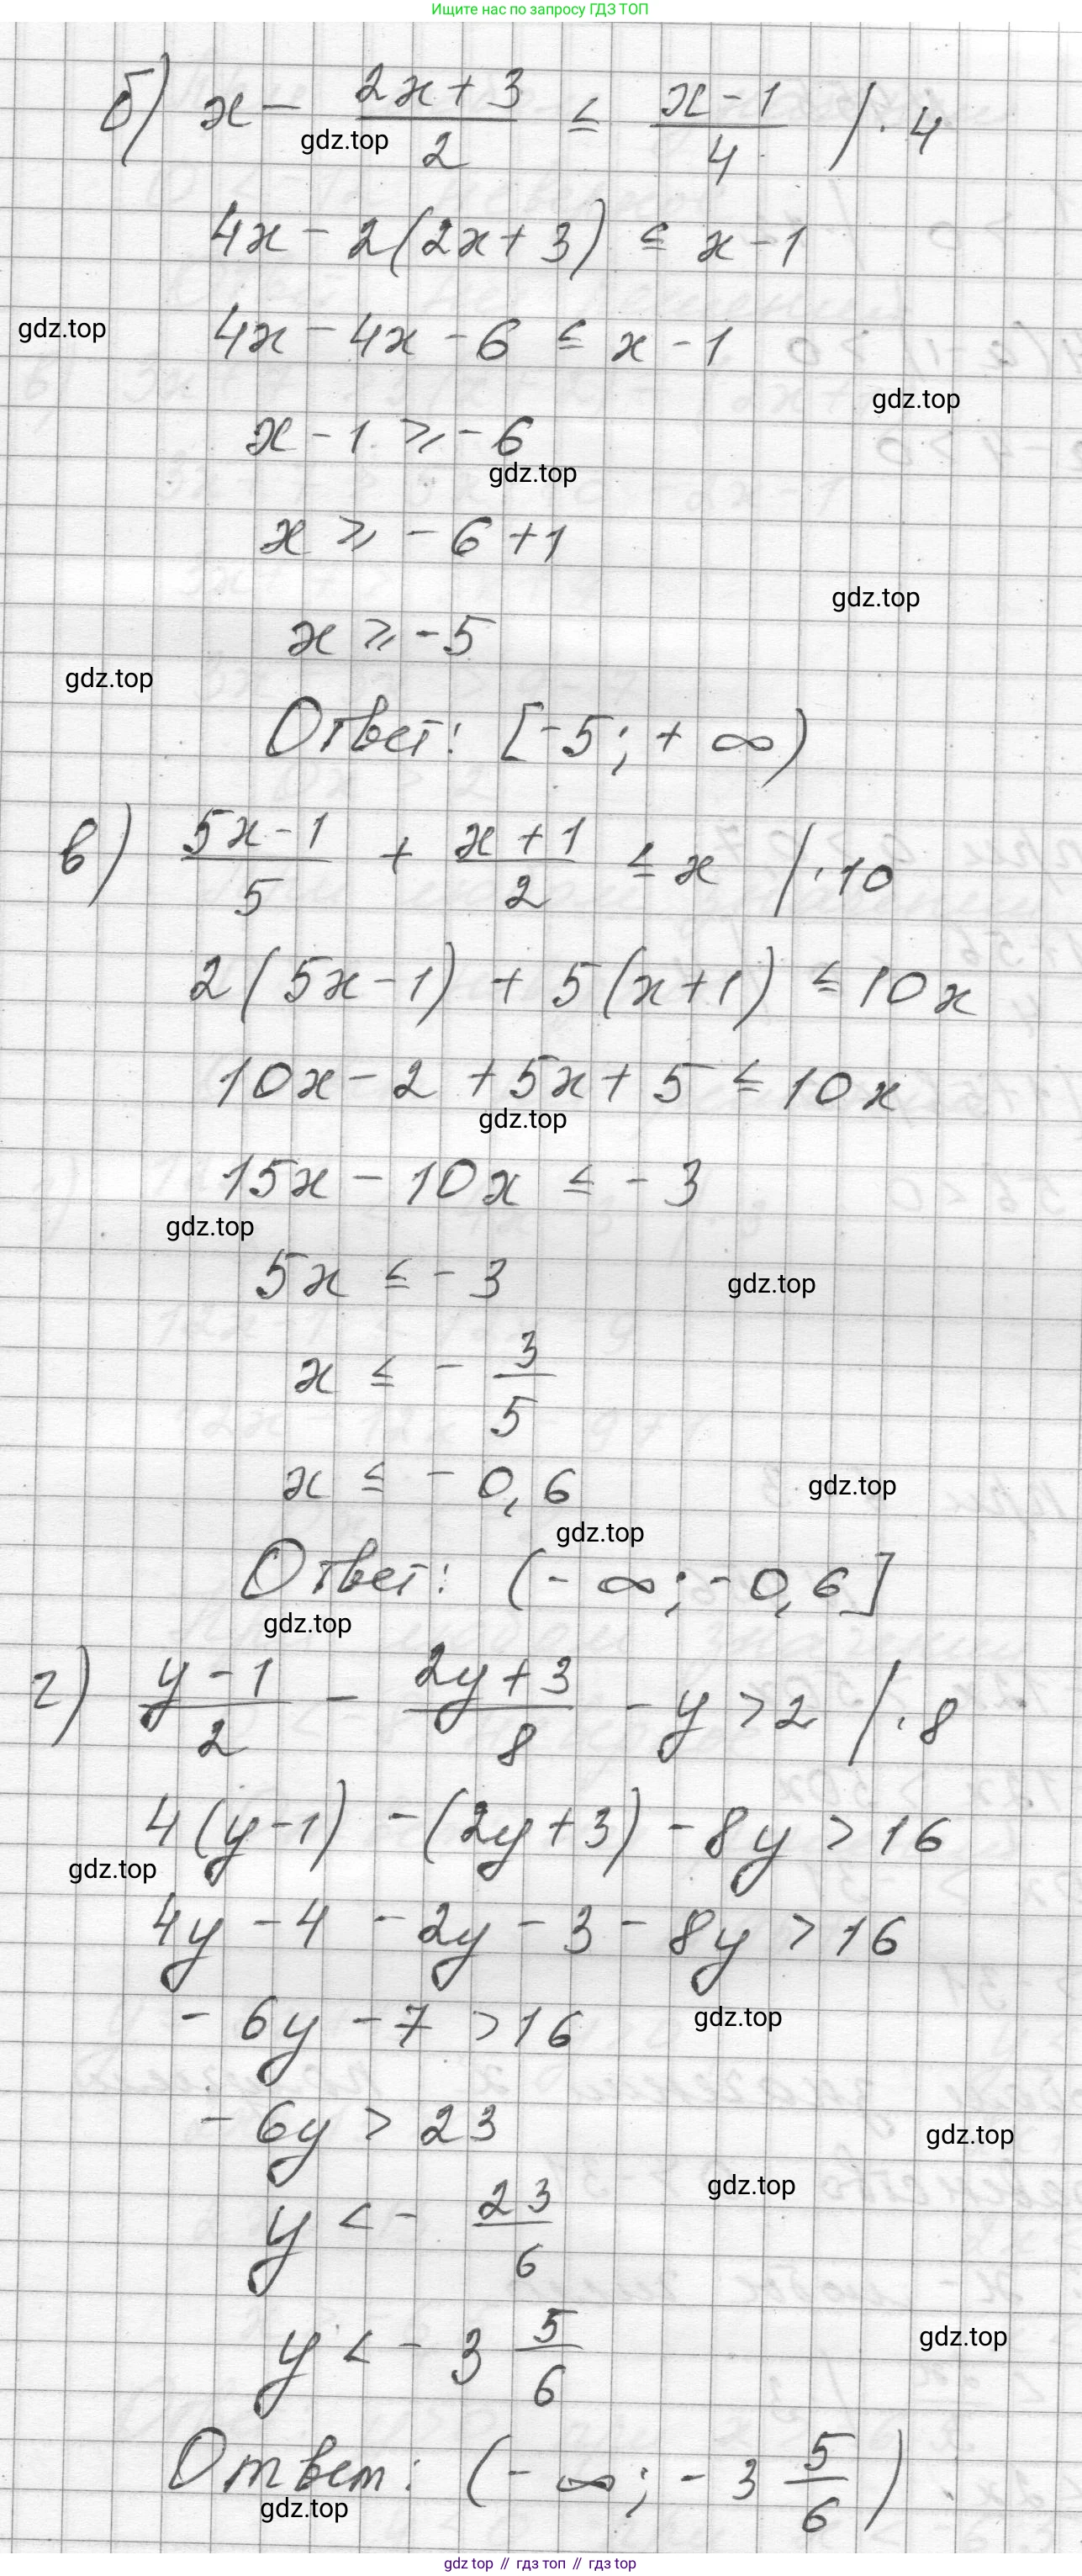 Ищите нас по запросу ГДЗ ТОП
б) x - (2x + 3)/2 ≤ (x - 1)/4 / · 4
gdz.top
4x - 2(2x + 3) ≤ x - 1
gdz.top
4x - 4x - 6 ≤ x - 1
gdz.top
x - 1 ⩾ - 6
gdz.top
x ⩾ - 6 + 1
gdz.top
x ⩾ - 5
gdz.top
Ответ: [-5; + ∞)
в) (5x - 1)/5 + (x + 1)/2 ≤ x / · 10
2(5x - 1) + 5(x + 1) ≤ 10x
10x - 2 + 5x + 5 ≤ 10x
gdz.top
15x - 10x ≤ - 3
gdz.top
5x ≤ - 3
gdz.top
x ≤ - 3/5
x ≤ - 0,6
gdz.top
gdz.top
Ответ: (- ∞; - 0,6]
gdz.top
г) (y - 1)/2 - (2y + 3)/8 - y > 2 / · 8
4(y - 1) - (2y + 3) - 8y > 16
gdz.top
4y - 4 - 2y - 3 - 8y > 16
- 6y - 7 > 16
gdz.top
- 6y > 23
gdz.top
gdz.top
y < - 23/6
y < - 3 5/6
gdz.top
Ответ: (- ∞; - 3 5/6)
gdz.top
gdz top // гдз топ // гдз top